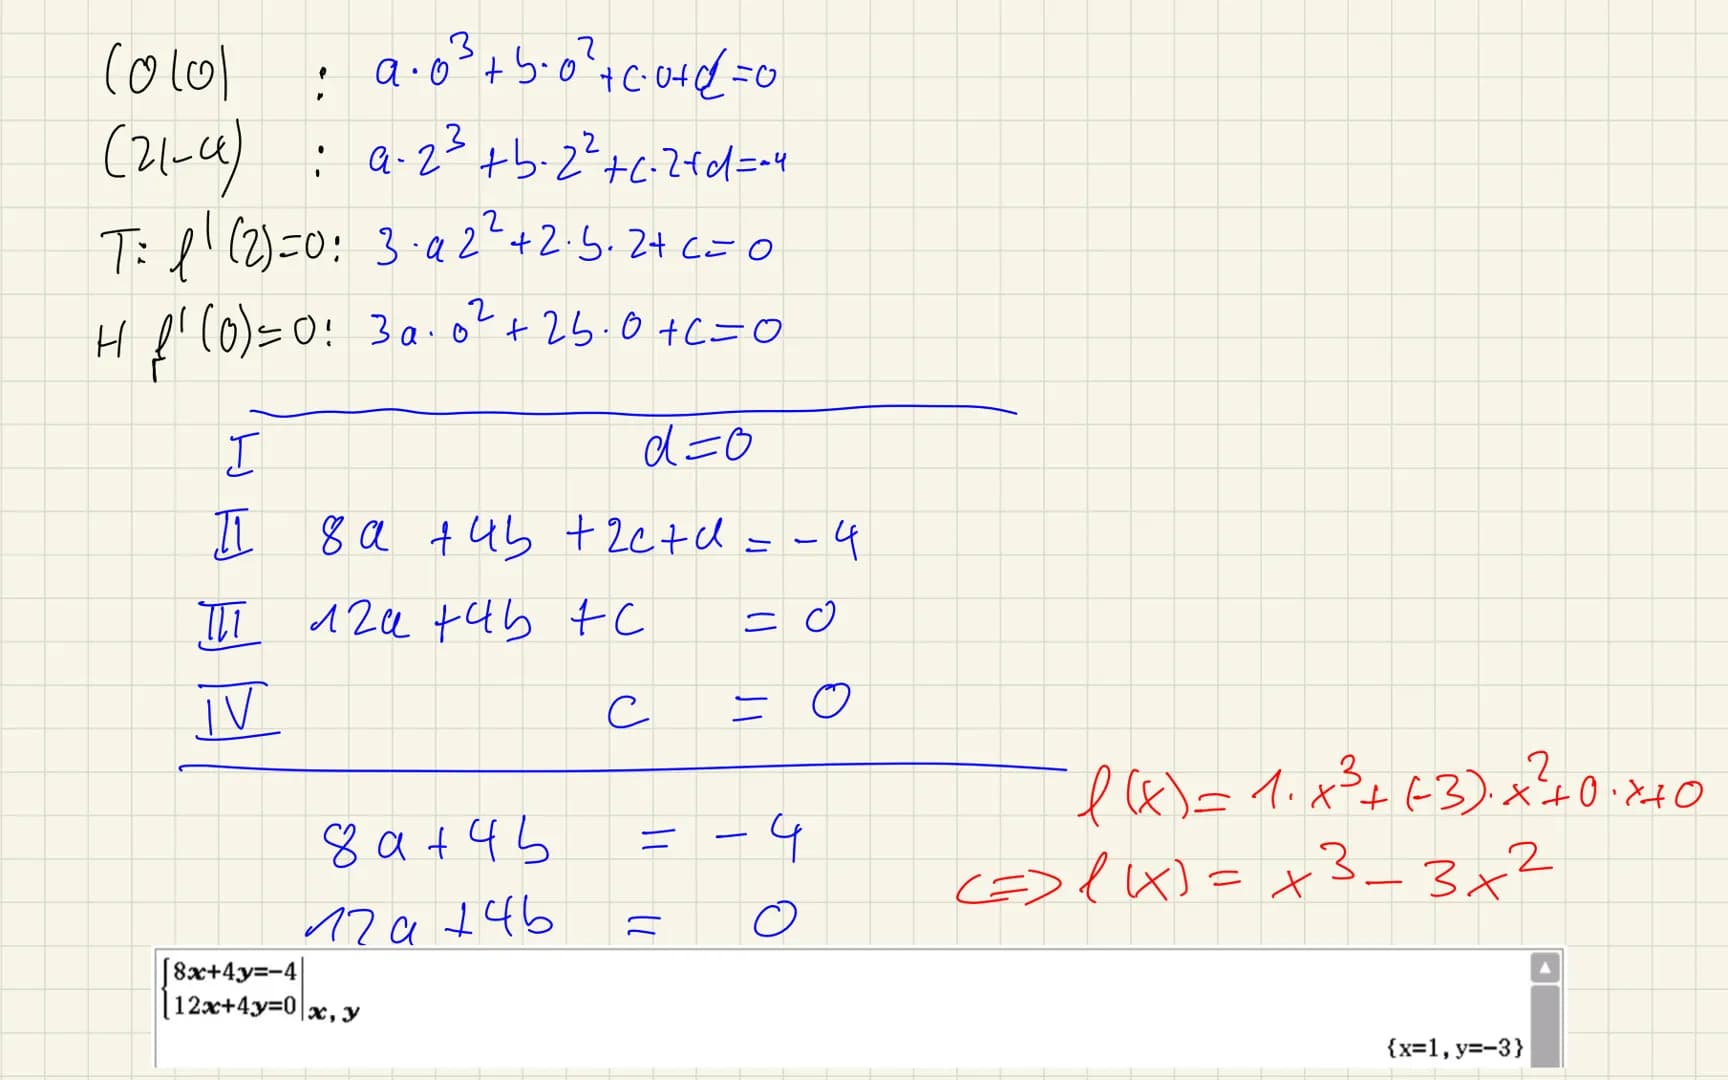 (0|0| : a·0³+b·0²+c·0+d=0
(2|-4) : a·2³+b·2²+c·2+d=-4
T: f'(2)=0: 3·a2²+2·b·2+c=0
H f'(0)=0: 3a·0²+2b·0+c=0
I d=0
II 8a+4b+2c+d=-4
III 12a+4b+c=0
IV c=0
8a+4b=-4
12a+4b=0
f(x)=1·x³+(-3)·x²+0·x+0
<=> f(x)=x³-3x²
{8x+4y=-4
12x+4y=0|x,y
{x=1,y=-3}